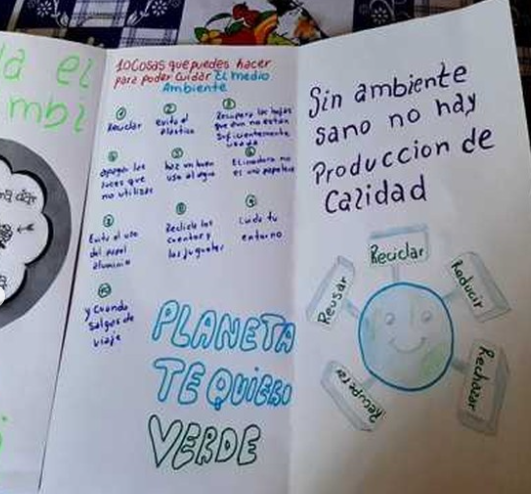 a el
mbi
10 Cosas que puedes hacer
para poder Cuidar EL medio
Ambiente
①
Reciclar
②
Evita el
plástico
③
Recupera las hojas
que aun no estan
suficientemente
usada
④
apagar las
luces que
no utilizas
⑤
haz un buen
uso al agua
⑥
El inodoro no
es una papelera
⑦
Evita el uso
del papel
aluminio
⑧
Recicla los
cuentos y
los juguetes
⑨
Cuida tu
entorno
⑩
y Cuando
salgas de
viaje
PLANETA
TE QUIERO
VERDE
Sin ambiente
sano no hay
Produccion de
Calidad
Reciclar
Reducir
Rechazar
Recuperar
Reusar